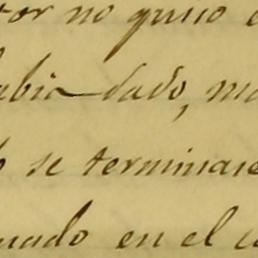 tor no quiso
abia dado, m
o se terminase
uado en el c